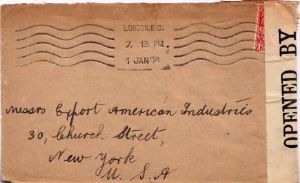 LONDON. E.C.
7. 15 PM
1 JAN
Messrs Export American Industries
30, Church Street,
New York
U. S. A
OPENED BY